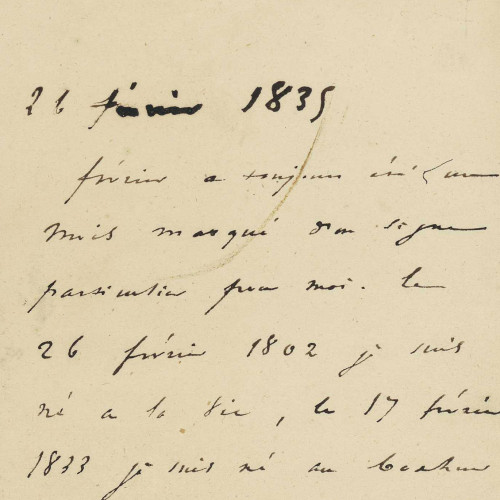 26 février 1835
février a toujours été un
mois marqué d'un signe
particulier pour moi. le
26 février 1802 je suis
né à la vie, le 17 février
1833 je suis né au bonheur